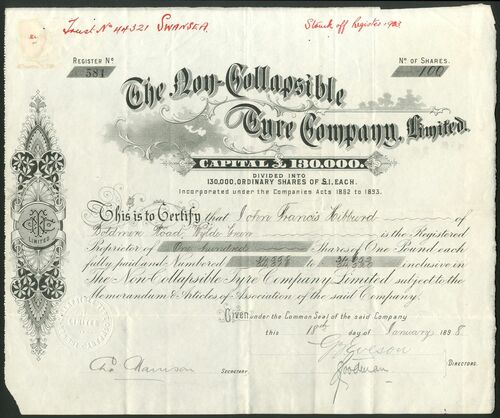 Trust No 44321 SWANSEA.
Struck off Register 1903
REGISTER No
581
No OF SHARES.
100
The Non-Collapsible
Tyre Company, Limited.
CAPITAL £130,000.
DIVIDED INTO
130,000, ORDINARY SHARES OF £1, EACH.
Incorporated under the Companies Acts 1862 to 1893.
This is to Certify that John Francis Hibburd of
Road, Green is the Registered
Proprietor of One hundred Shares of One Pound each
fully paid and Numbered to inclusive in
The Non-Collapsible Tyre Company Limited subject to the
Memorandum & Articles of Association of the said Company.
LIMITED
Given under the Common Seal of the said Company
this 18th day of January 1898
LIMITED
Harrison
SECRETARY
Goodman
DIRECTORS.